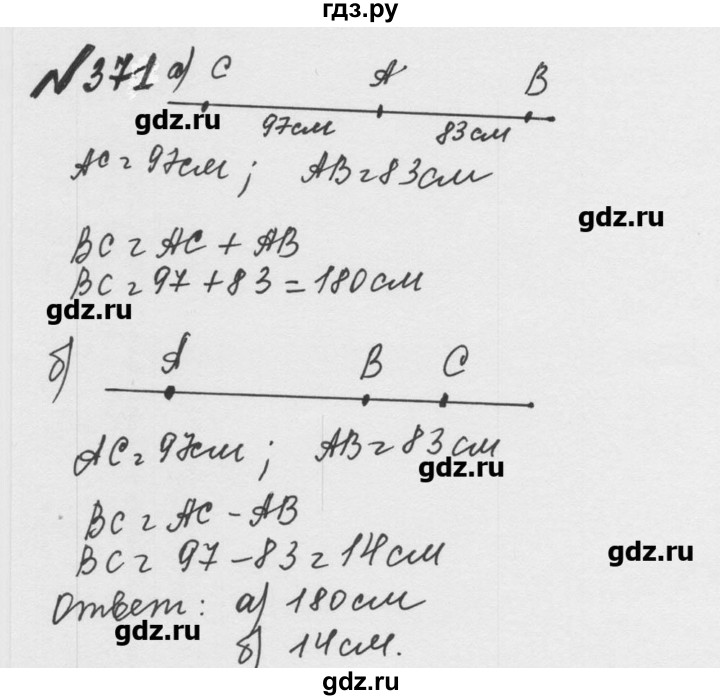 гдз.ру
№371 а) C A B
97см 83см
gdz.ru
AC = 97см; AB = 83см
gdz.ru
BC = AC + AB
BC = 97 + 83 = 180см
gdz.ru
б) A B C
AC = 97см; AB = 83см
gdz.ru
BC = AC - AB
BC = 97 - 83 = 14см
gdz.ru
Ответ: а) 180см
gdz.ru
б) 14см.
gdz.ru